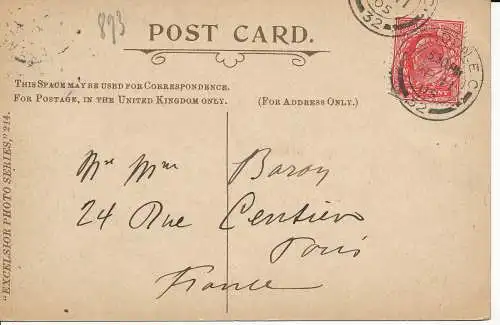 893
POST CARD.
THIS SPACE MAY BE USED FOR CORRESPONDENCE.
FOR POSTAGE, IN THE UNITED KINGDOM ONLY.
(FOR ADDRESS ONLY.)
32
32
Baron
24 Rue Centier
Paris
France
"EXCELSIOR PHOTO SERIES," 214.